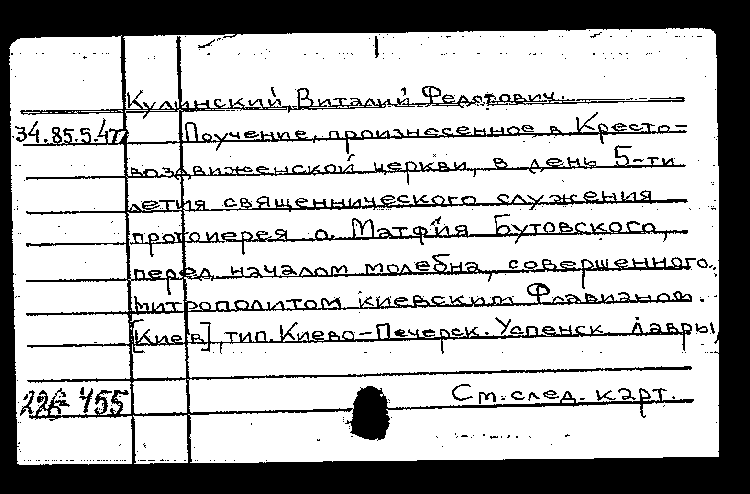 Кулинский, Виталий Федорович.
34.85.5.47 Поучение, произнесенное в Кресто-
воздвиженской церкви, в день 5-ти
летия священнического служения
протоиерея о. Матфия Бутовского,
перед началом молебна, совершенного
митрополитом киевским Флавианом.
[Киев], тип. Киево-Печерск. Успенск. лавры,
См. след. карт.
455